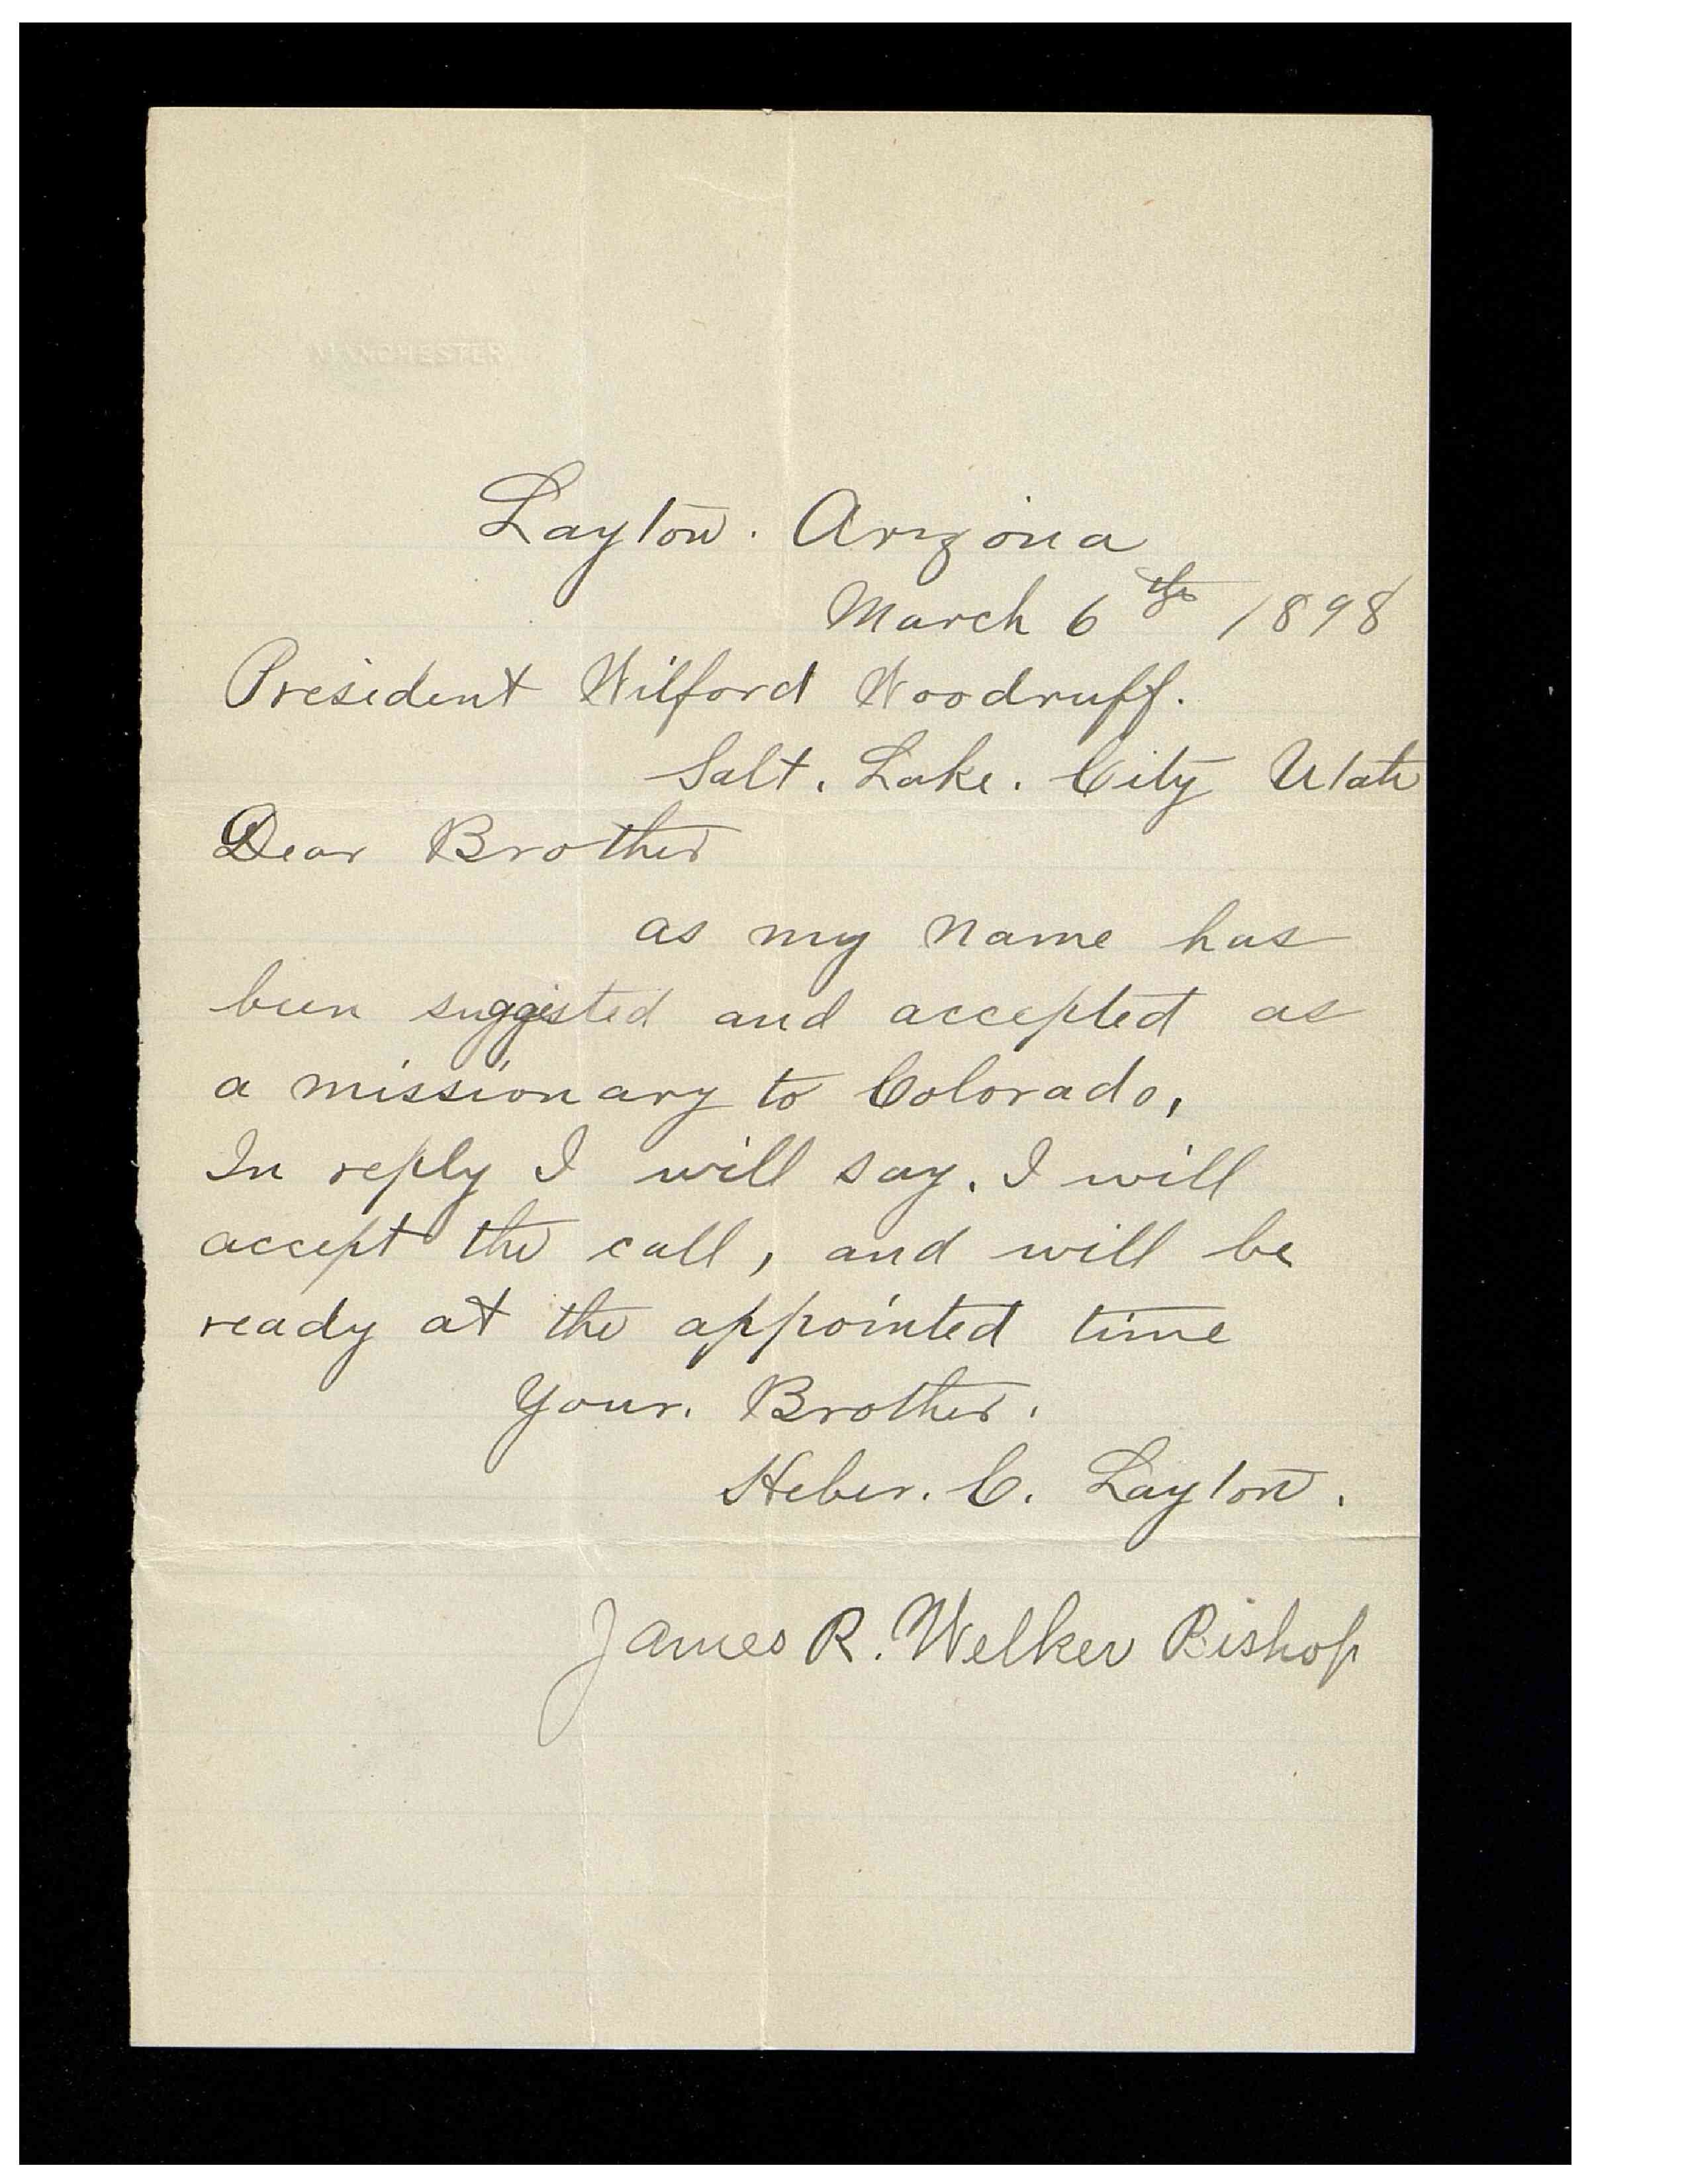 MANCHESTER
Layton. Arizona
March 6th 1898
President Wilford Woodruff.
Salt. Lake. City Utah
Dear Brother
as my name has
been suggested and accepted as
a missionary to Colorado,
In reply I will say. I will
accept the call, and will be
ready at the appointed time
Your. Brother.
Heber. C. Layton.
James R. Welker Bishop